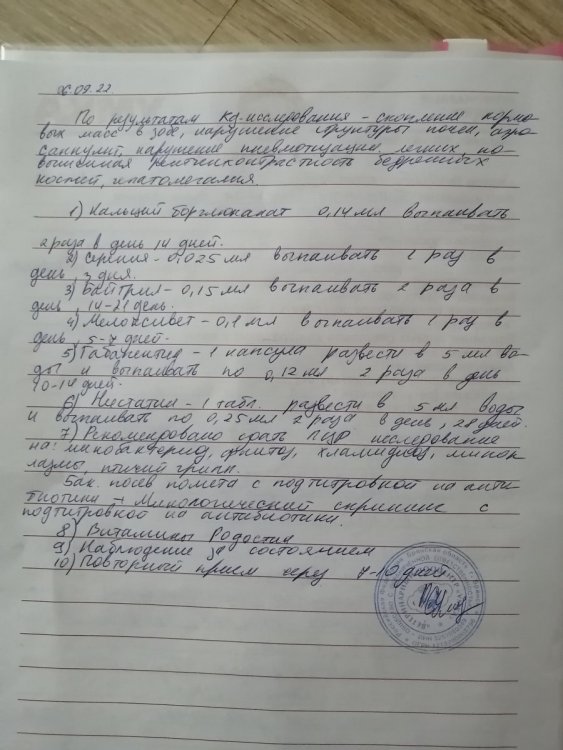 06.09.22.
По результатам Rg-исследования - скопление кормо-
вых масс в зобе, нарушение структуры почек, аэро-
саккулит, нарушение пневмотизации легких, по-
вышенная рентгенконтрастность бедренных
костей, гепатомегалия.
1) Кальций борглюконат 0,14 мл выпаивать
2 раза в день 14 дней.
2) Серения - 0,025 мл выпаивать 1 раз в
день, 3 дня.
3) Байтрил - 0,15 мл выпаивать 2 раза в
день, 14-21 день.
4) Мелоксивет - 0,1 мл выпаивать 1 раз в
день, 5-7 дней.
5) Габапентин - 1 капсула развести в 5 мл во-
ды и выпаивать по 0,12 мл 2 раза в день
10-14 дней.
6) Нистатин - 1 табл. развести в 5 мл воды
и выпаивать по 0,25 мл 2 раза в день, 28 дней.
7) Рекомендовано сдать ПЦР исследование
на: микобактериоз, орнитоз, хламидиоз, микоп-
лазмы, птичий грипп.
Бак. посев помета с подтитровкой на анти-
биотики + Микологический скрининг с
подтитровкой на антибиотики.
8) Витамины Родостин
9) Наблюдение за состоянием
10) Повторный прием через 7-10 дней